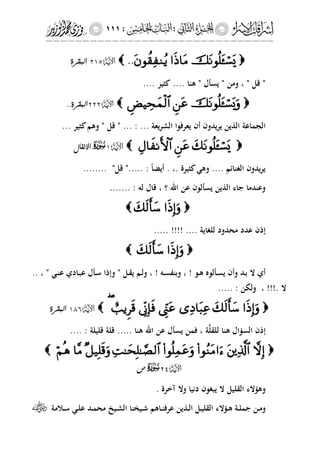 إشراقات الإسراء الجزء الثاني : البنات الخامس : ١١١
﴿ يَسْـَٔلُونَكَ مَاذَا يُنفِقُونَ ﴾.. الآية ٢١٥ البقرة
" قل " ، ومن " يسأل " هنا .... كثير ....
﴿ وَيَسْـَٔلُونَكَ عَنِ ٱلْمَحِيضِ ﴾ الآية ٢٢٢ البقرة..
الجماعة الذين يريدون أن يعرفوا الشريعة ... : ... " قل " وهم كثير ...
﴿ يَسْـَٔلُونَكَ عَنِ ٱلْأَنفَالِ ﴾ الآية ١ الأنفال
يريدون الغنائم .... وهي كثيرة .. أيضاً : ...... " قل" ........
وعندما جاء الذين يسألون عن الله ؟ ، قال له : .......
﴿ وَإِذَا سَأَلَكَ ﴾
إذن عدد محدود للغاية .... !!!! .....
﴿ وَإِذَا سَأَلَكَ ﴾
أي لا بـد وأن يسـألوه هـو ! ، وبنفسـه ! ، ولـم يقـل " وإذا سـأل عبـادي عنـي " ، ..
لا .!!! ، ولكن : .....
﴿ وَإِذَا سَأَلَكَ عِبَادِى عَنِّى فَإِنِّى قَرِيبٌ ﴾ الآية ١٨٦ البقرة
إذن السؤال هنا للقلّة ، فمن يسأل عن الله هنا ..... قلة قليلة : ....
﴿ إِلَّا ٱلَّذِينَ ءَامَنُوا۟ وَعَمِلُوا۟ ٱلصَّـٰلِحَـٰتِ وَقَلِيلٌ مَّا هُمْ ﴾
الآية ٢٤ ص
وهؤلاء القليل لا يبغون دنيا ولا آخرة .
ومـن جملـة هـؤلاء القليـل الـذين عرفنـاهم شيخنـا الشـيخ محمـد علـي سـلامة